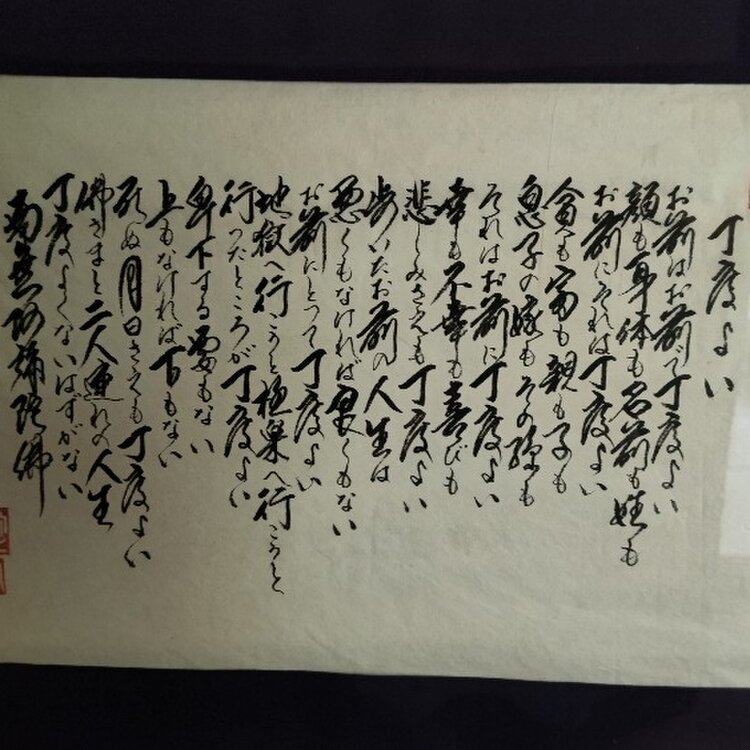 丁度よい
お前はお前で丁度よい
顔も身体も名前も姓も
お前にそれは丁度よい
貧も富も親も子も
息子の嫁もその孫も
それはお前に丁度よい
幸も不幸も喜びも
悲しみさえも丁度よい
歩いたお前の人生は
悪くもなければ良くもない
お前にとって丁度よい
地獄へ行こうと極楽へ行こうと
行ったところが丁度よい
卑下する要もない
上もなければ下もない
死ぬ月日さえも丁度よい
佛さまと二人連れの人生
丁度よくないはずがない
南無阿弥陀佛